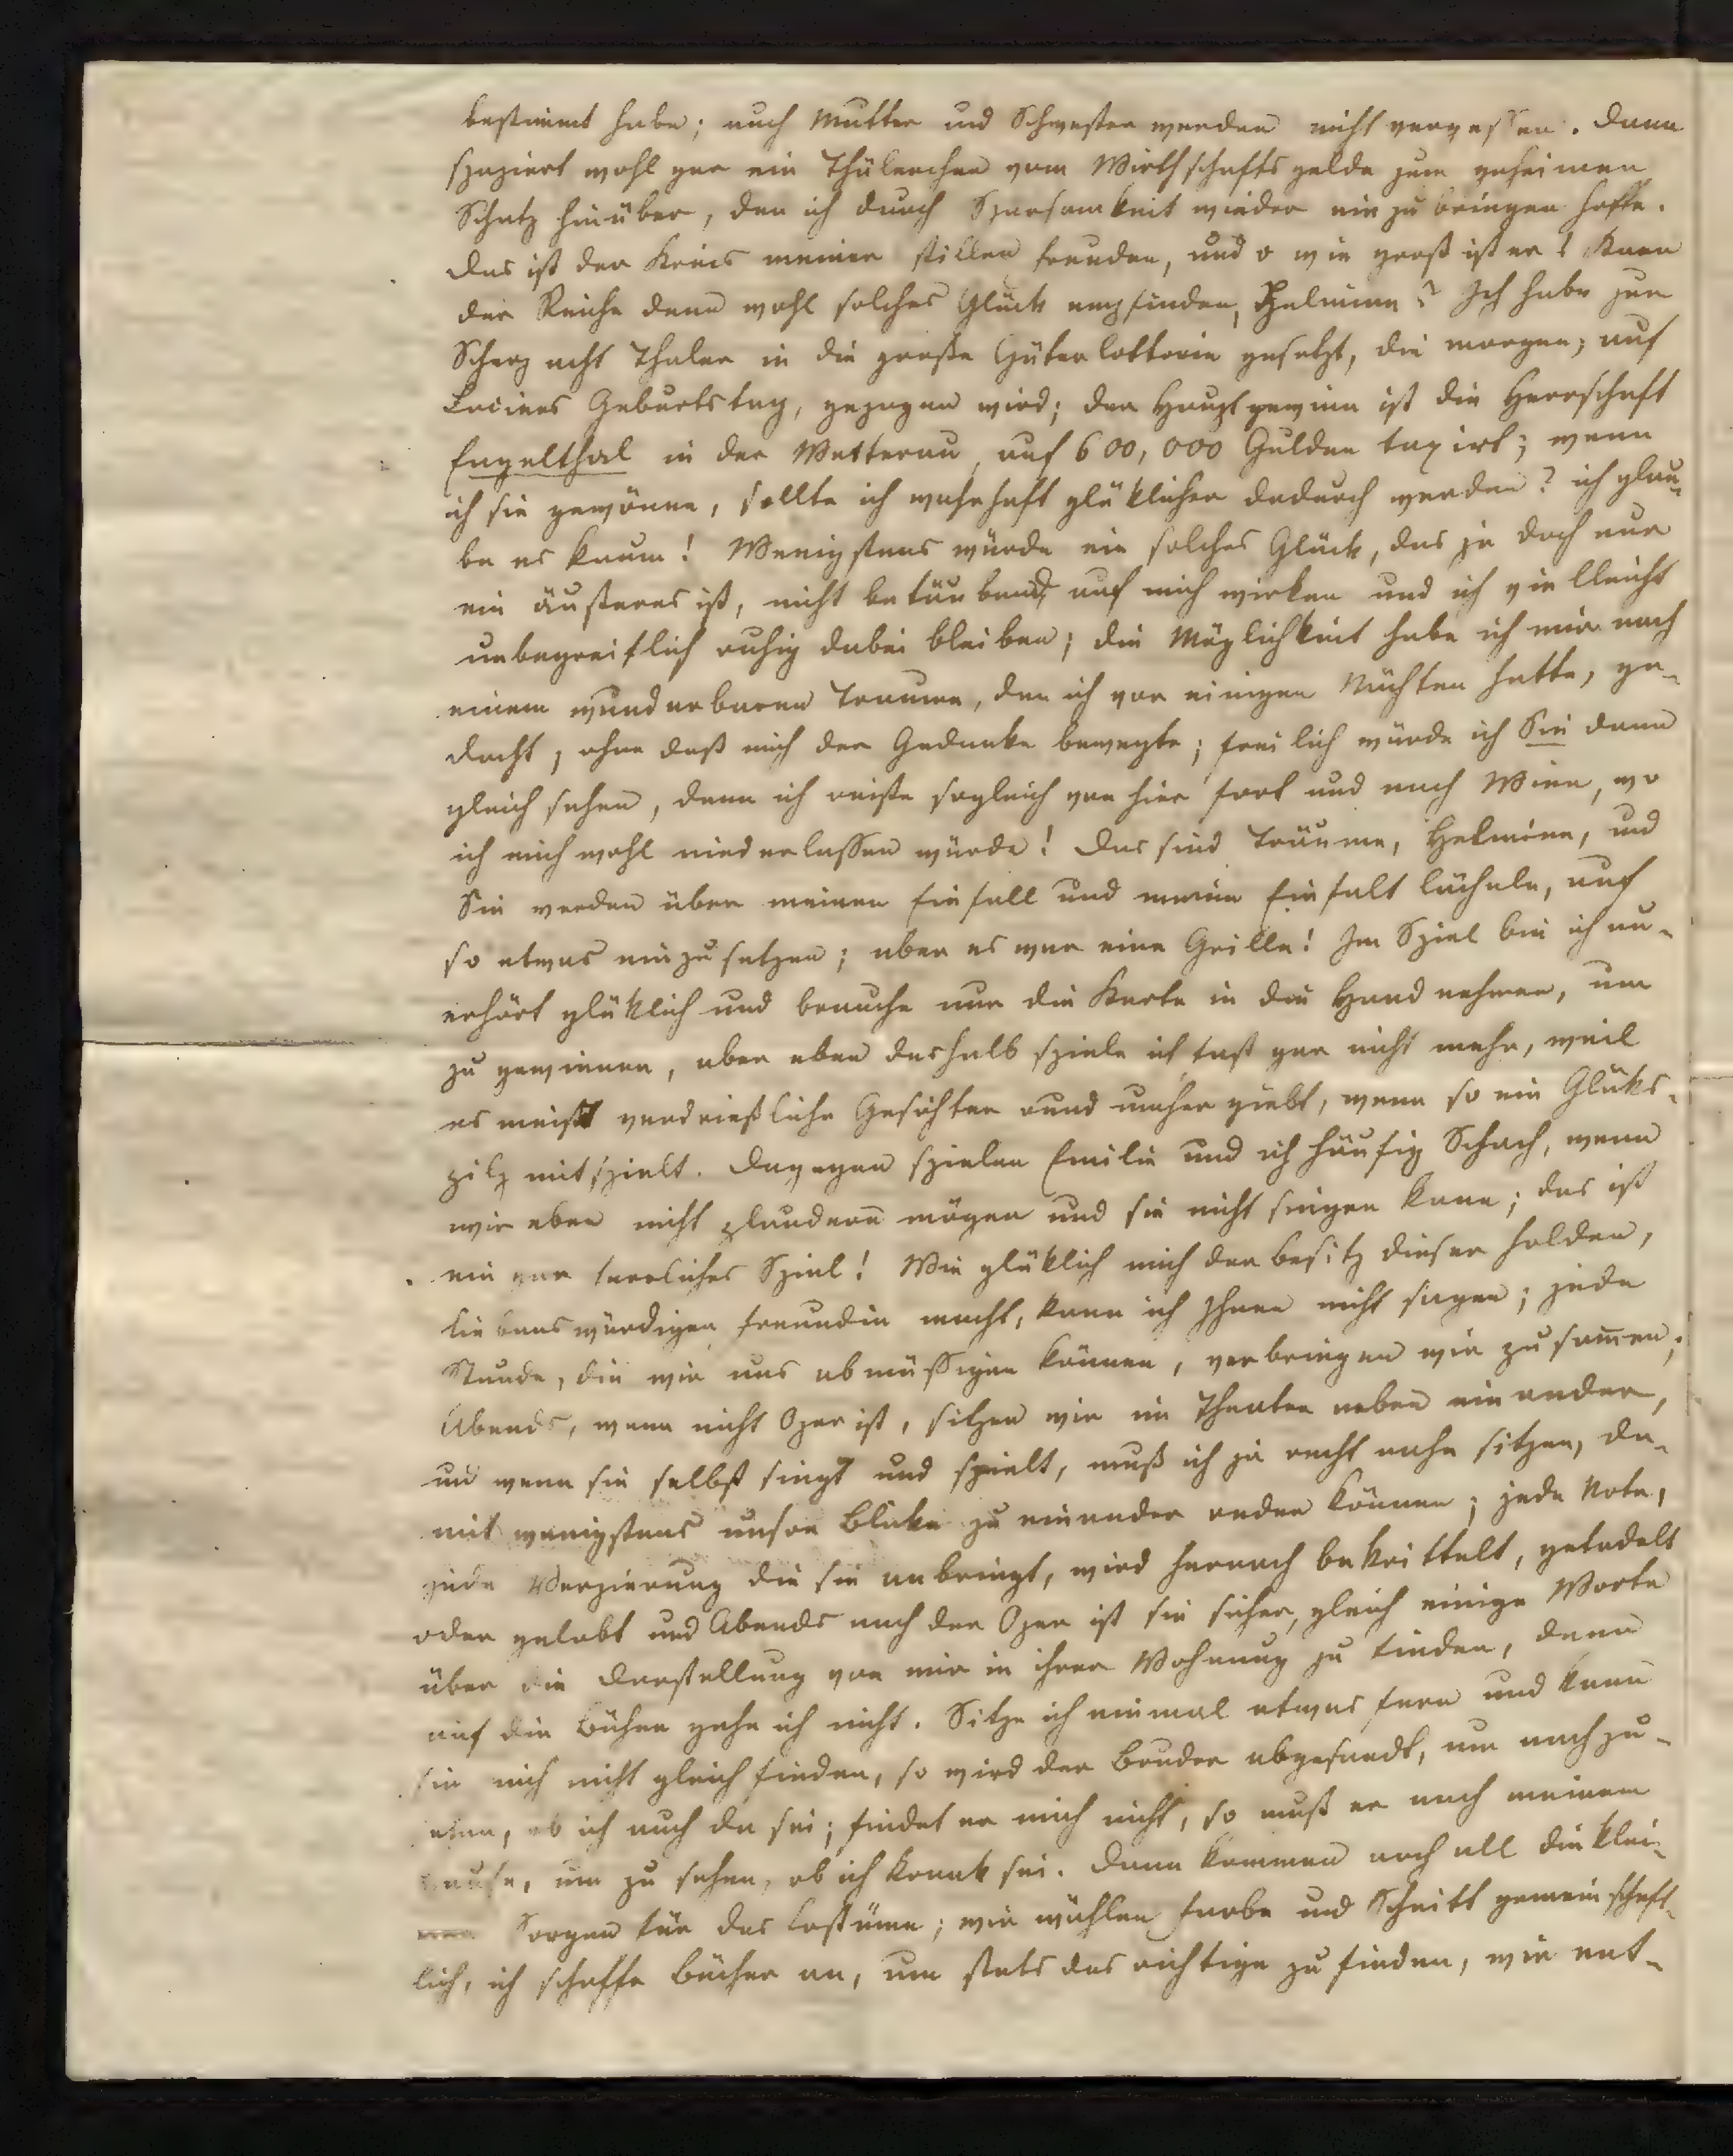 bestimmt habe; auch Mutter und Schwester werden nicht vergessen. Dann
spaziert wohl gar ein Thälerchen vom Wirthschaftsgelde zum geheimen
Schatz hinüber, den ich durch Sparsamkeit wieder einzubringen hoffe.
Das ist der Kreis meiner stillen Freuden, und o wie groß ist er! Kann
der Reiche denn wohl solches Glück empfinden, Helmina? Ich habe zum
Scherz acht Thaler in die große Güterlotterie gesetzt, die morgen, auf
Luciens Geburtstag, gezogen wird; der Hauptgewinn ist die Herrschaft
Engelthal in der Wetterau, auf 600,000 Gulden taxirt; wenn
ich sie gewönne, sollte ich wahrhaft glüklicher dadurch werden? ich glau-
be es kaum! Wenigstens würde ein solches Glück, das ja doch nur
ein äußeres ist, nicht betäubend auf mich wirken und ich vielleicht
unbegreiflich ruhig dabei bleiben; die Möglichkeit habe ich mir nach
einem wunderbaren Traume, den ich vor einigen Nächten hatte, ge-
dacht, ohne daß mich der Gedanke bewegte; freilich würde ich Sie dann
gleich sehen, denn ich reiste sogleich von hier fort und nach Wien, wo
ich mich wohl niederlassen würde! Das sind Träume, Helmina, und
Sie werden über meinen Einfall und meine Einfalt lächeln, auf
so etwas einzusetzen; aber es war eine Grille! Im Spiel bin ich un-
erhört glüklich und brauche nur die Karte in die Hand nehmen, um
zu gewinnen, aber eben deshalb spiele ich fast gar nicht mehr, weil
es meist verdrießliche Gesichter rund umher giebt, wenn so ein Glüks-
pilz mitspielt. Dagegen spielen Emilie und ich häufig Schach, wenn
wir eben nicht plaudern mögen und sie nicht singen kann; das ist
ein gar herrliches Spiel! Wie glüklich mich der Besitz dieser holden,
liebenswürdigen Freundin macht, kann ich Ihnen nicht sagen; jede
Stunde, die wir uns abmüssigen können, verbringen wir zusamen;
Abends, wenn nicht Oper ist, sitzen wir im Theater neben einander,
und wenn sie selbst singt und spielt, muß ich ja recht nahe sitzen, da-
mit wenigstens unsre Blicke zu einander reden können; jede Note,
jede Verzierung die sie anbringt, wird hernach bekrittelt, getadelt
oder gelobt und Abends nach der Oper ist sie sicher, gleich einige Worte
über die Darstellung von mir in ihrer Wohnung zu finden, denn
auf die Bühne gehe ich nicht. Sitze ich einmal etwas fern und kann
sie mich nicht gleich finden, so wird der Bruder abgesandt, um nachzu-
sehen, ob ich auch da sei; findet er mich nicht, so muß er nach meinem
Hause, um zu sehen, ob ich krank sei. Dann kommen noch all die klei-
nen Sorgen für das Costüme; wir wählen Farbe und Schnitt gemeinschaft-
lich, ich schaffe Bücher an, um stets das richtige zu finden, wir ent-